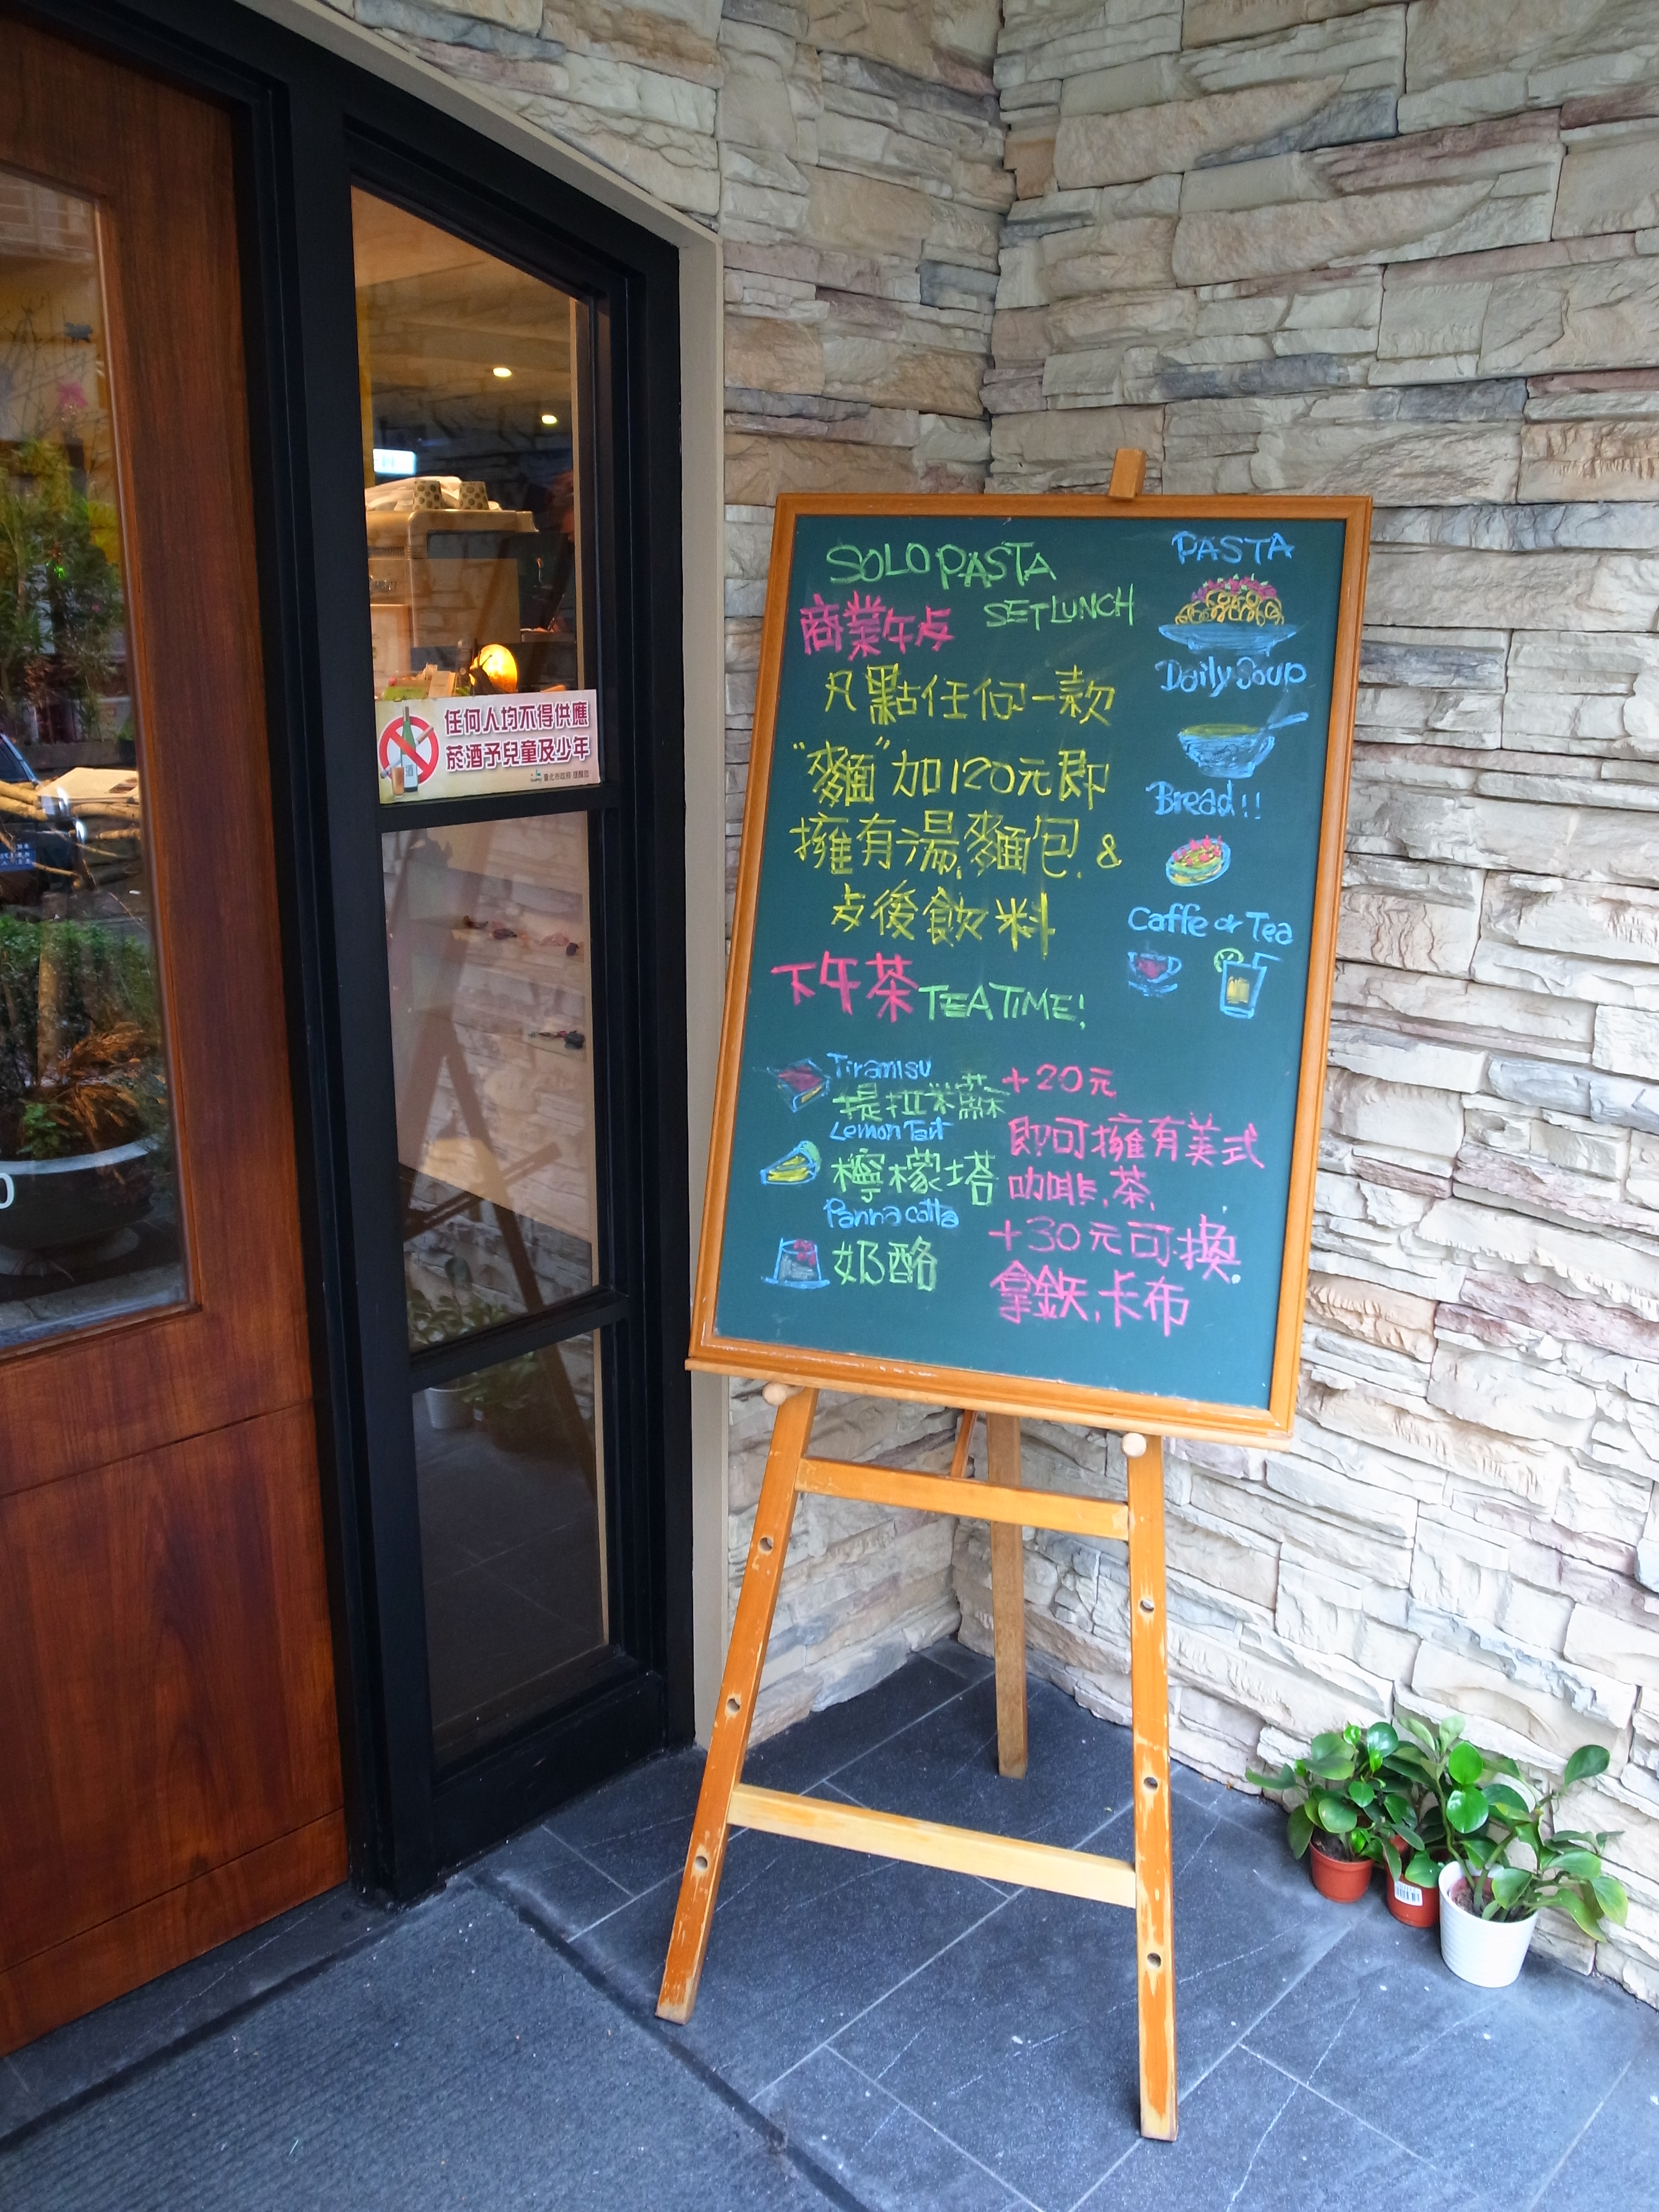 任何人均不得供應
菸酒予兒童及少年
臺北市政府 提醒您
SOLO PASTA
商業午歺 SET LUNCH
凡點任何一款
"麵"加120元即
擁有湯.麵包. &
歺後飲料
PASTA
Daily Soup
Bread!!
Caffe or Tea
下午茶 TEA TIME!
Tiramisu
提拉米蘇
Lemon Tart
檸檬塔
Panna cotta
奶酪
+20元
即可擁有美式
咖啡.茶.
+30元可換.
拿鉄.卡布